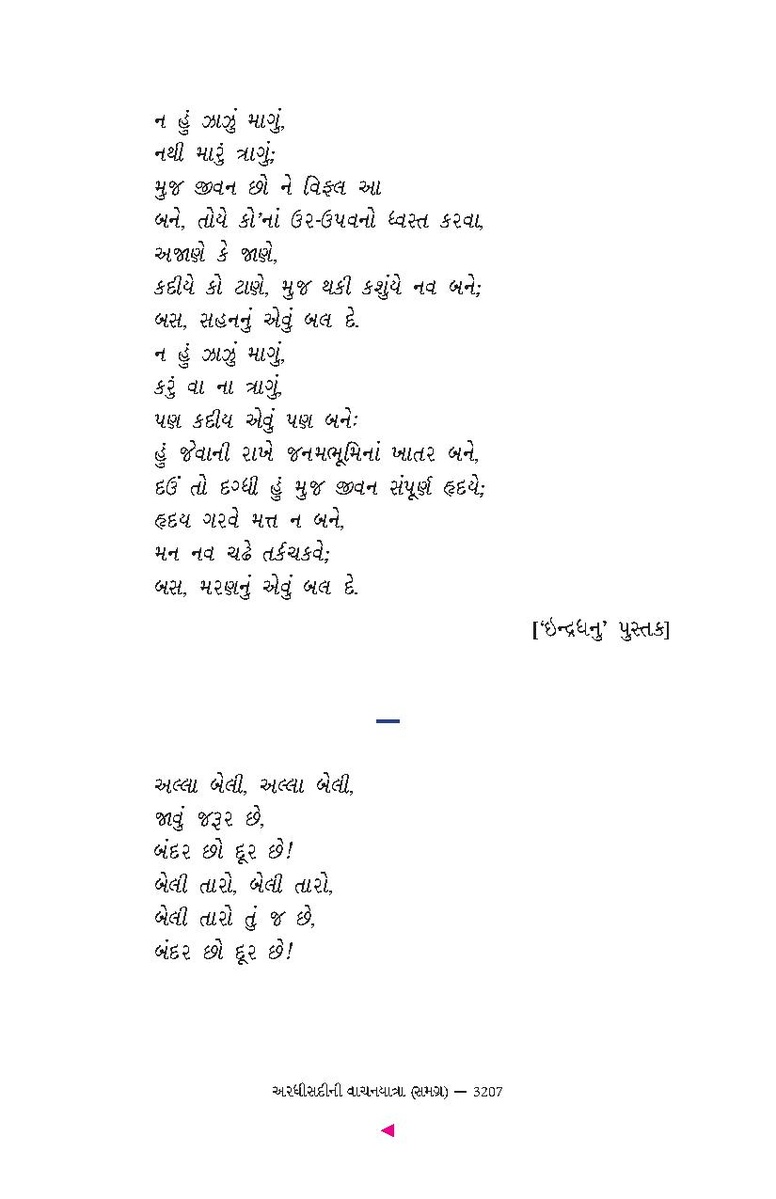 ન હું ઝાઝું માગું,
નથી મારું ત્રાગું;
મુજ જીવન છો ને વિફલ આ
બને, તોયે કો’નાં ઉર-ઉપવનો ધ્વસ્ત કરવા,
અજાણે કે જાણે,
કદીયે કો ટાણે, મુજ થકી કશુંયે નવ બને;
બસ, સહનનું એવું બલ દે.
ન હું ઝાઝું માગું,
કરું વા ના ત્રાગું,
પણ કદીય એવું પણ બનેઃ
હું જેવાની રાખે જનમભૂમિનાં ખાતર બને,
દઉં તો દગ્ધી હું મુજ જીવન સંપૂર્ણ હૃદયે;
હૃદય ગરવે મત્ત ન બને,
મન નવ ચઢે તર્કચકવે;
બસ, મરણનું એવું બલ દે.
[‘ઇન્દ્રધનુ’ પુસ્તક]
અલ્લા બેલી, અલ્લા બેલી,
જાવું જરૂર છે,
બંદર છો દૂર છે!
બેલી તારો, બેલી તારો,
બેલી તારો તું જ છે,
બંદર છો દૂર છે!
અરધીસદીની વાચનયાત્રા (સમગ્ર) — 3207